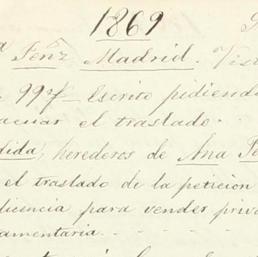 1869
Fenz Madrid.
997 Escrito pidiendo
acuar el traslado.
dida, herederos de Ana
el traslado de la peticion
dicencia para vender priv
amentaria..